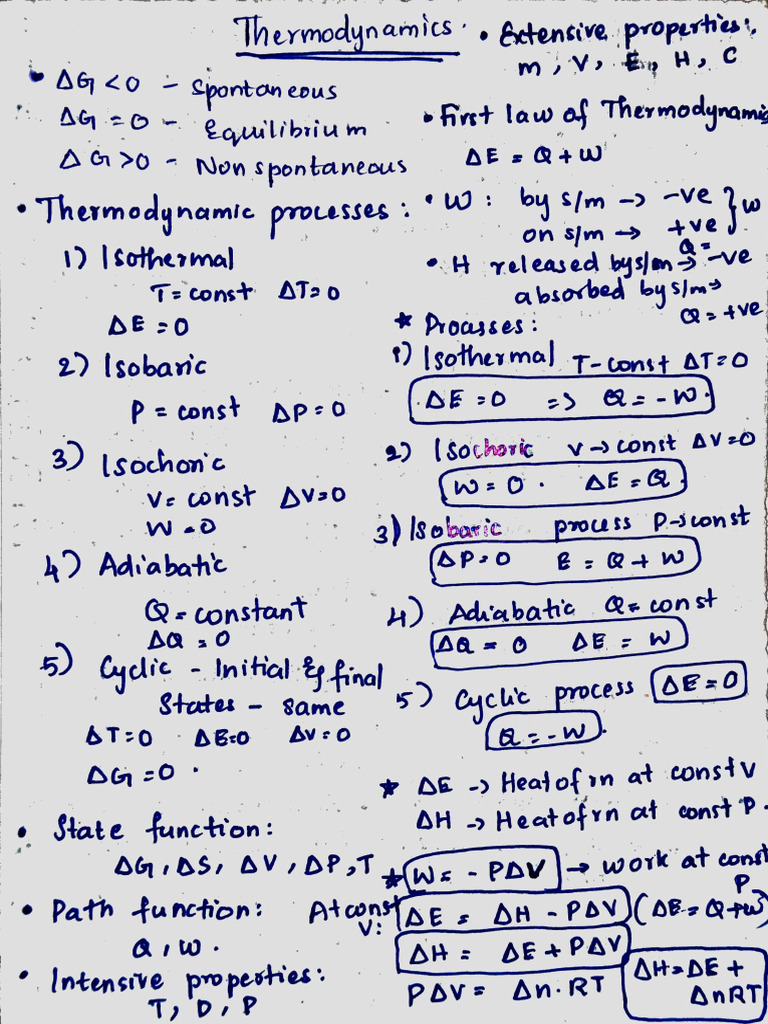 Thermodynamics.
• ΔG < 0 - Spontaneous
ΔG = 0 - Equilibrium
ΔG > 0 - Non spontaneous
• Thermodynamic processes:
1) Isothermal
T = const ΔT = 0
ΔE = 0
2) Isobaric
P = const ΔP = 0
3) Isochoric
V = const ΔV = 0
W = 0
4) Adiabatic
Q = constant
ΔQ = 0
5) Cyclic - Initial & final
States - same
ΔT = 0 ΔE = 0 ΔV = 0
ΔG = 0 .
• State function:
ΔG, ΔS, ΔV, ΔP, T
• Path function:
Q, W.
• Intensive properties:
T, D, P
• Extensive properties:,
m, V, E, H, C
• First law of Thermodynamics
ΔE = Q + W
• W : by s/m → -ve } W
on s/m → +ve
• H released by s/m → Q = -ve
absorbed by s/m →
Q = +ve
* Processes:
1) Isothermal T-const ΔT = 0
ΔE = 0 => Q = -W.
2) Isochoric V → const ΔV = 0
W = 0 . ΔE = Q.
3) Isobaric process P → const
ΔP = 0 E = Q + W
4) Adiabatic Q = const
ΔQ = 0 ΔE = W
5) Cyclic process ΔE = 0
Q = -W.
* ΔE → Heat of rn at const V
ΔH → Heat of rn at const P.
* W = - PΔV → work at const P
At const V: ΔE = ΔH - PΔV (ΔE = Q + W)
ΔH = ΔE + PΔV
PΔV = Δn. RT
ΔH = ΔE +
ΔnRT